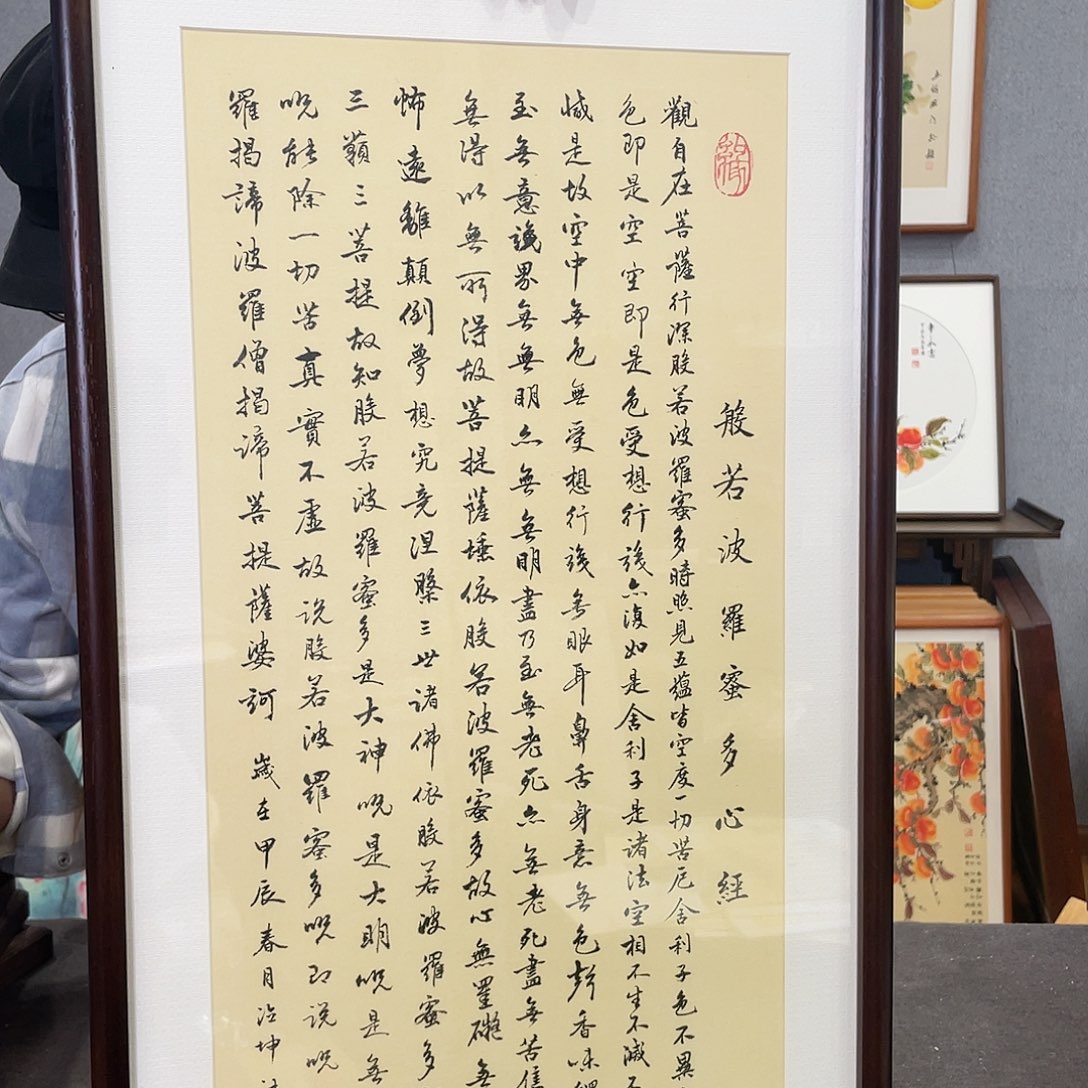 般若波羅蜜多心經
觀自在菩薩行深般若波羅蜜多時照見五蘊皆空度一切苦厄舍利子色不異
色即是空空即是色受想行識亦復如是舍利子是諸法空相不生不滅不
減是故空中無色無受想行識無眼耳鼻舌身意無色聲香味觸
至無意識界無無明亦無無明盡乃至無老死亦無老死盡無苦集
無得以無所得故菩提薩埵依般若波羅蜜多故心無罣礙無
怖遠離顛倒夢想究竟涅槃三世諸佛依般若波羅蜜多
三藐三菩提故知般若波羅蜜多是大神呪是大明呪是無
呪能除一切苦真實不虛故説般若波羅蜜多呪即説呪
羅揭諦波羅僧揭諦菩提薩婆訶 歲在甲辰春月冶坤